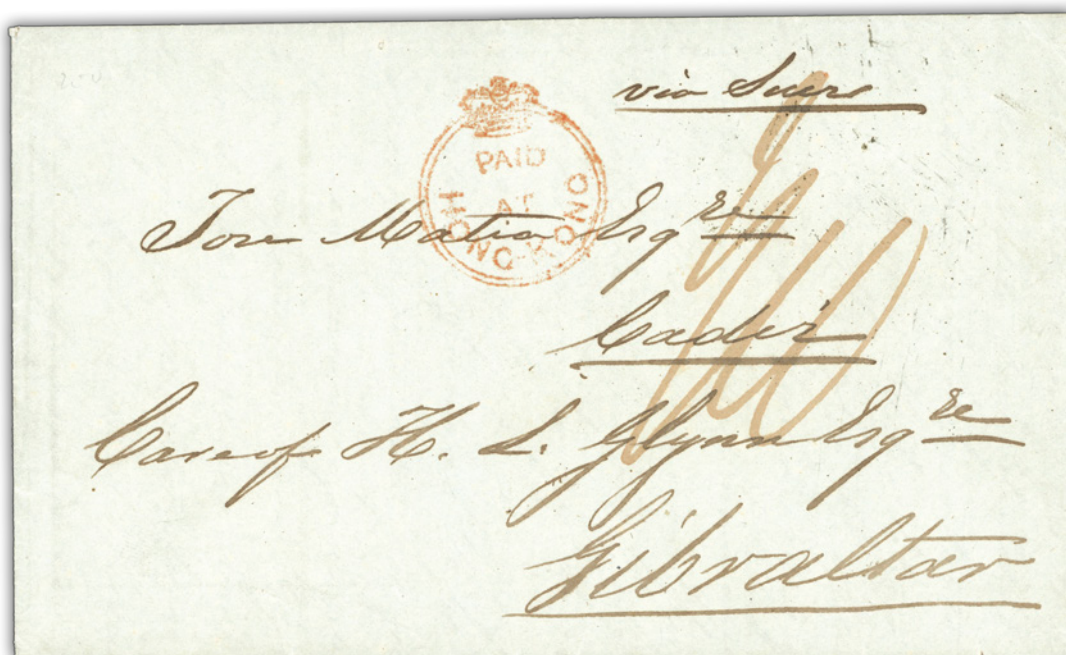 via Suez
PAID
AT
HONG-KONG
Jose Matia Esqre
Cadiz
Care of H. L. Glynn Esqre
Gibraltar